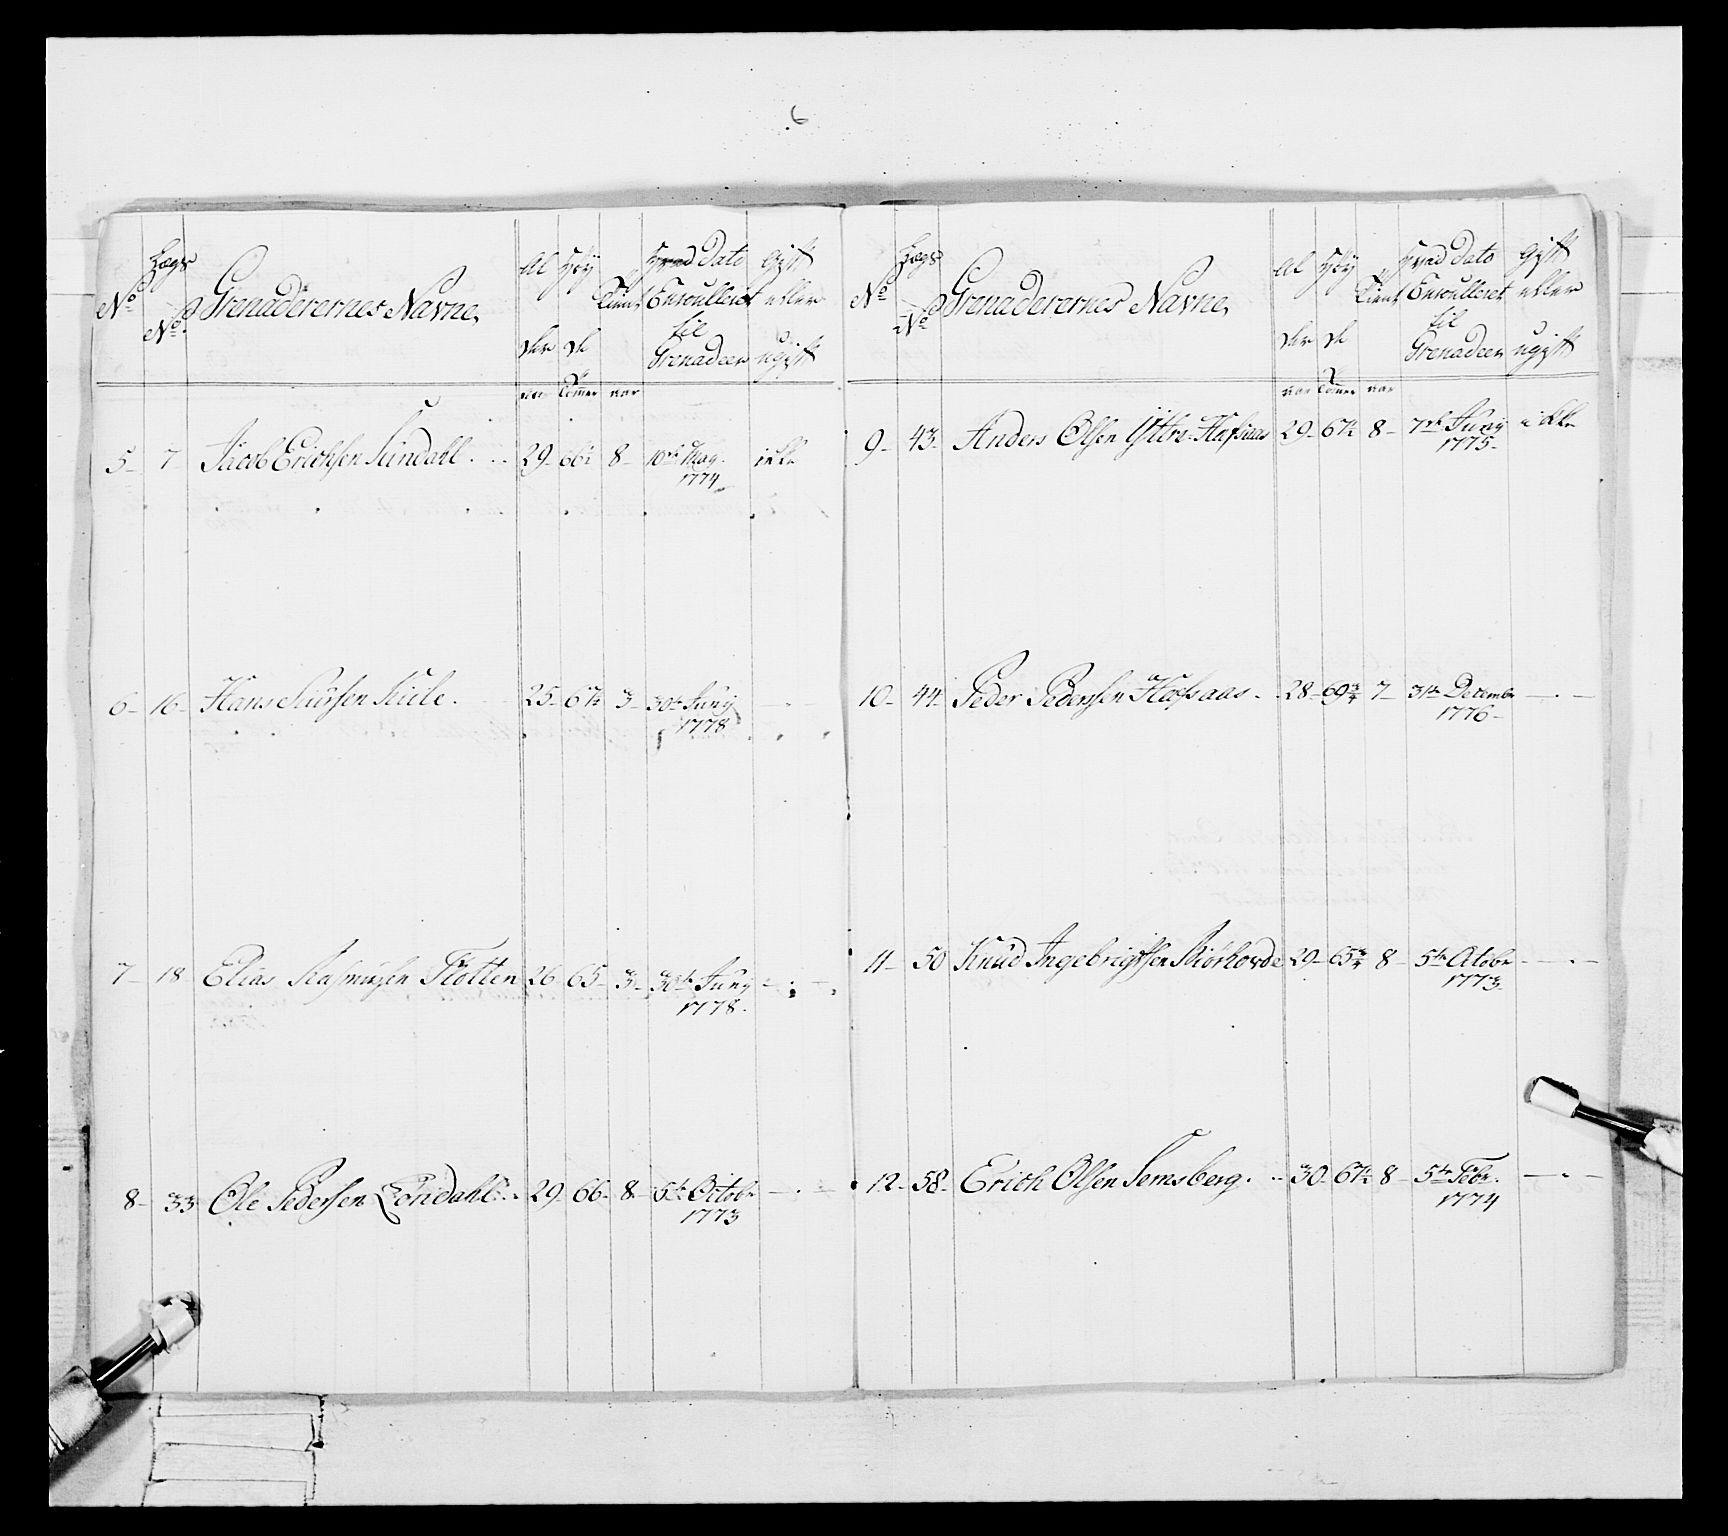 6
No Lægs No Grenaderernes Navne, Al der Høy de Tient Hvad Dato Enroulleret til Grenadeer Gift eller ugift
aar Tommer aar
5 - 7 Jacob Erichsen Sundahl. 29 - 66½ 8 - 10de May ikke
1774
6 - 16 - Hans Siursen 25 - 67½ 3 - 30te Juny - . -
1778
7 - 18 Elias Rasmusen Tiötten 26 65 - 3 - 30te Juny - . -
1778.
8 - 33 Ole Pedersen Löndahl. 29 - 66 - 8 - 5te Octobr - . -
1773
No Lægs No Grenaderernes Navne, Al der Høy de Tient Hvad Dato Enroulleret til Grenadeer Gift eller ugift
aar Tommer aar
9 - 43 - Anders Olsen Yttre-Hafsaas 29 - 67½ 8 - 7de Juny ikke
1775 -
10 - 44 - Peder Pedersen Hafsaas - 28 - 69¾ 7 - 31te Decembr - . -
1776 -
11 - 50 Knud Ingebrigtsen Biörhovde 29 - 65¾ 8 - 5te Octobr - . -
1773
12 - 58 - Erich Olsen Semsberg. - 30 - 67½ 8 - 5te Febr. - . -
1774